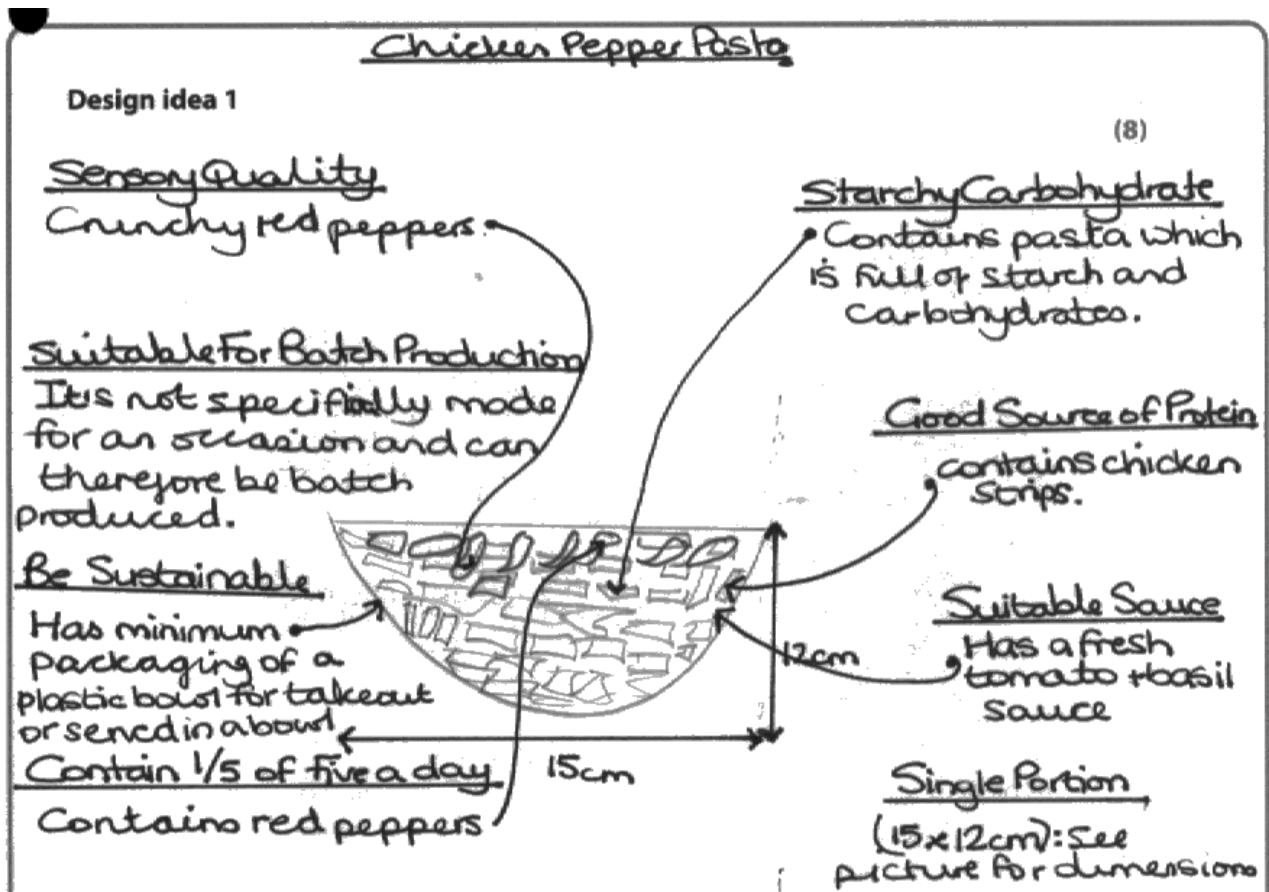 Chicken Pepper Pasta
Design idea 1
(8)
Sensory Quality
Crunchy red peppers.
Suitable For Batch Production
It is not specifially made
for an occasion and can
therefore be batch
produced.
Be Sustainable
Has minimum
packaging of a
plastic bowl for takeout
or served in a bowl
Contain 1/5 of five a day
Contains red peppers
Starchy Carbohydrate
Contains pasta which
is full of starch and
carbohydrates.
Good Source of Protein
contains chicken
strips.
Suitable Sauce
Has a fresh
tomato + basil
sauce
Single Portion
(15x12cm): See
picture for dimensions
12cm
15cm